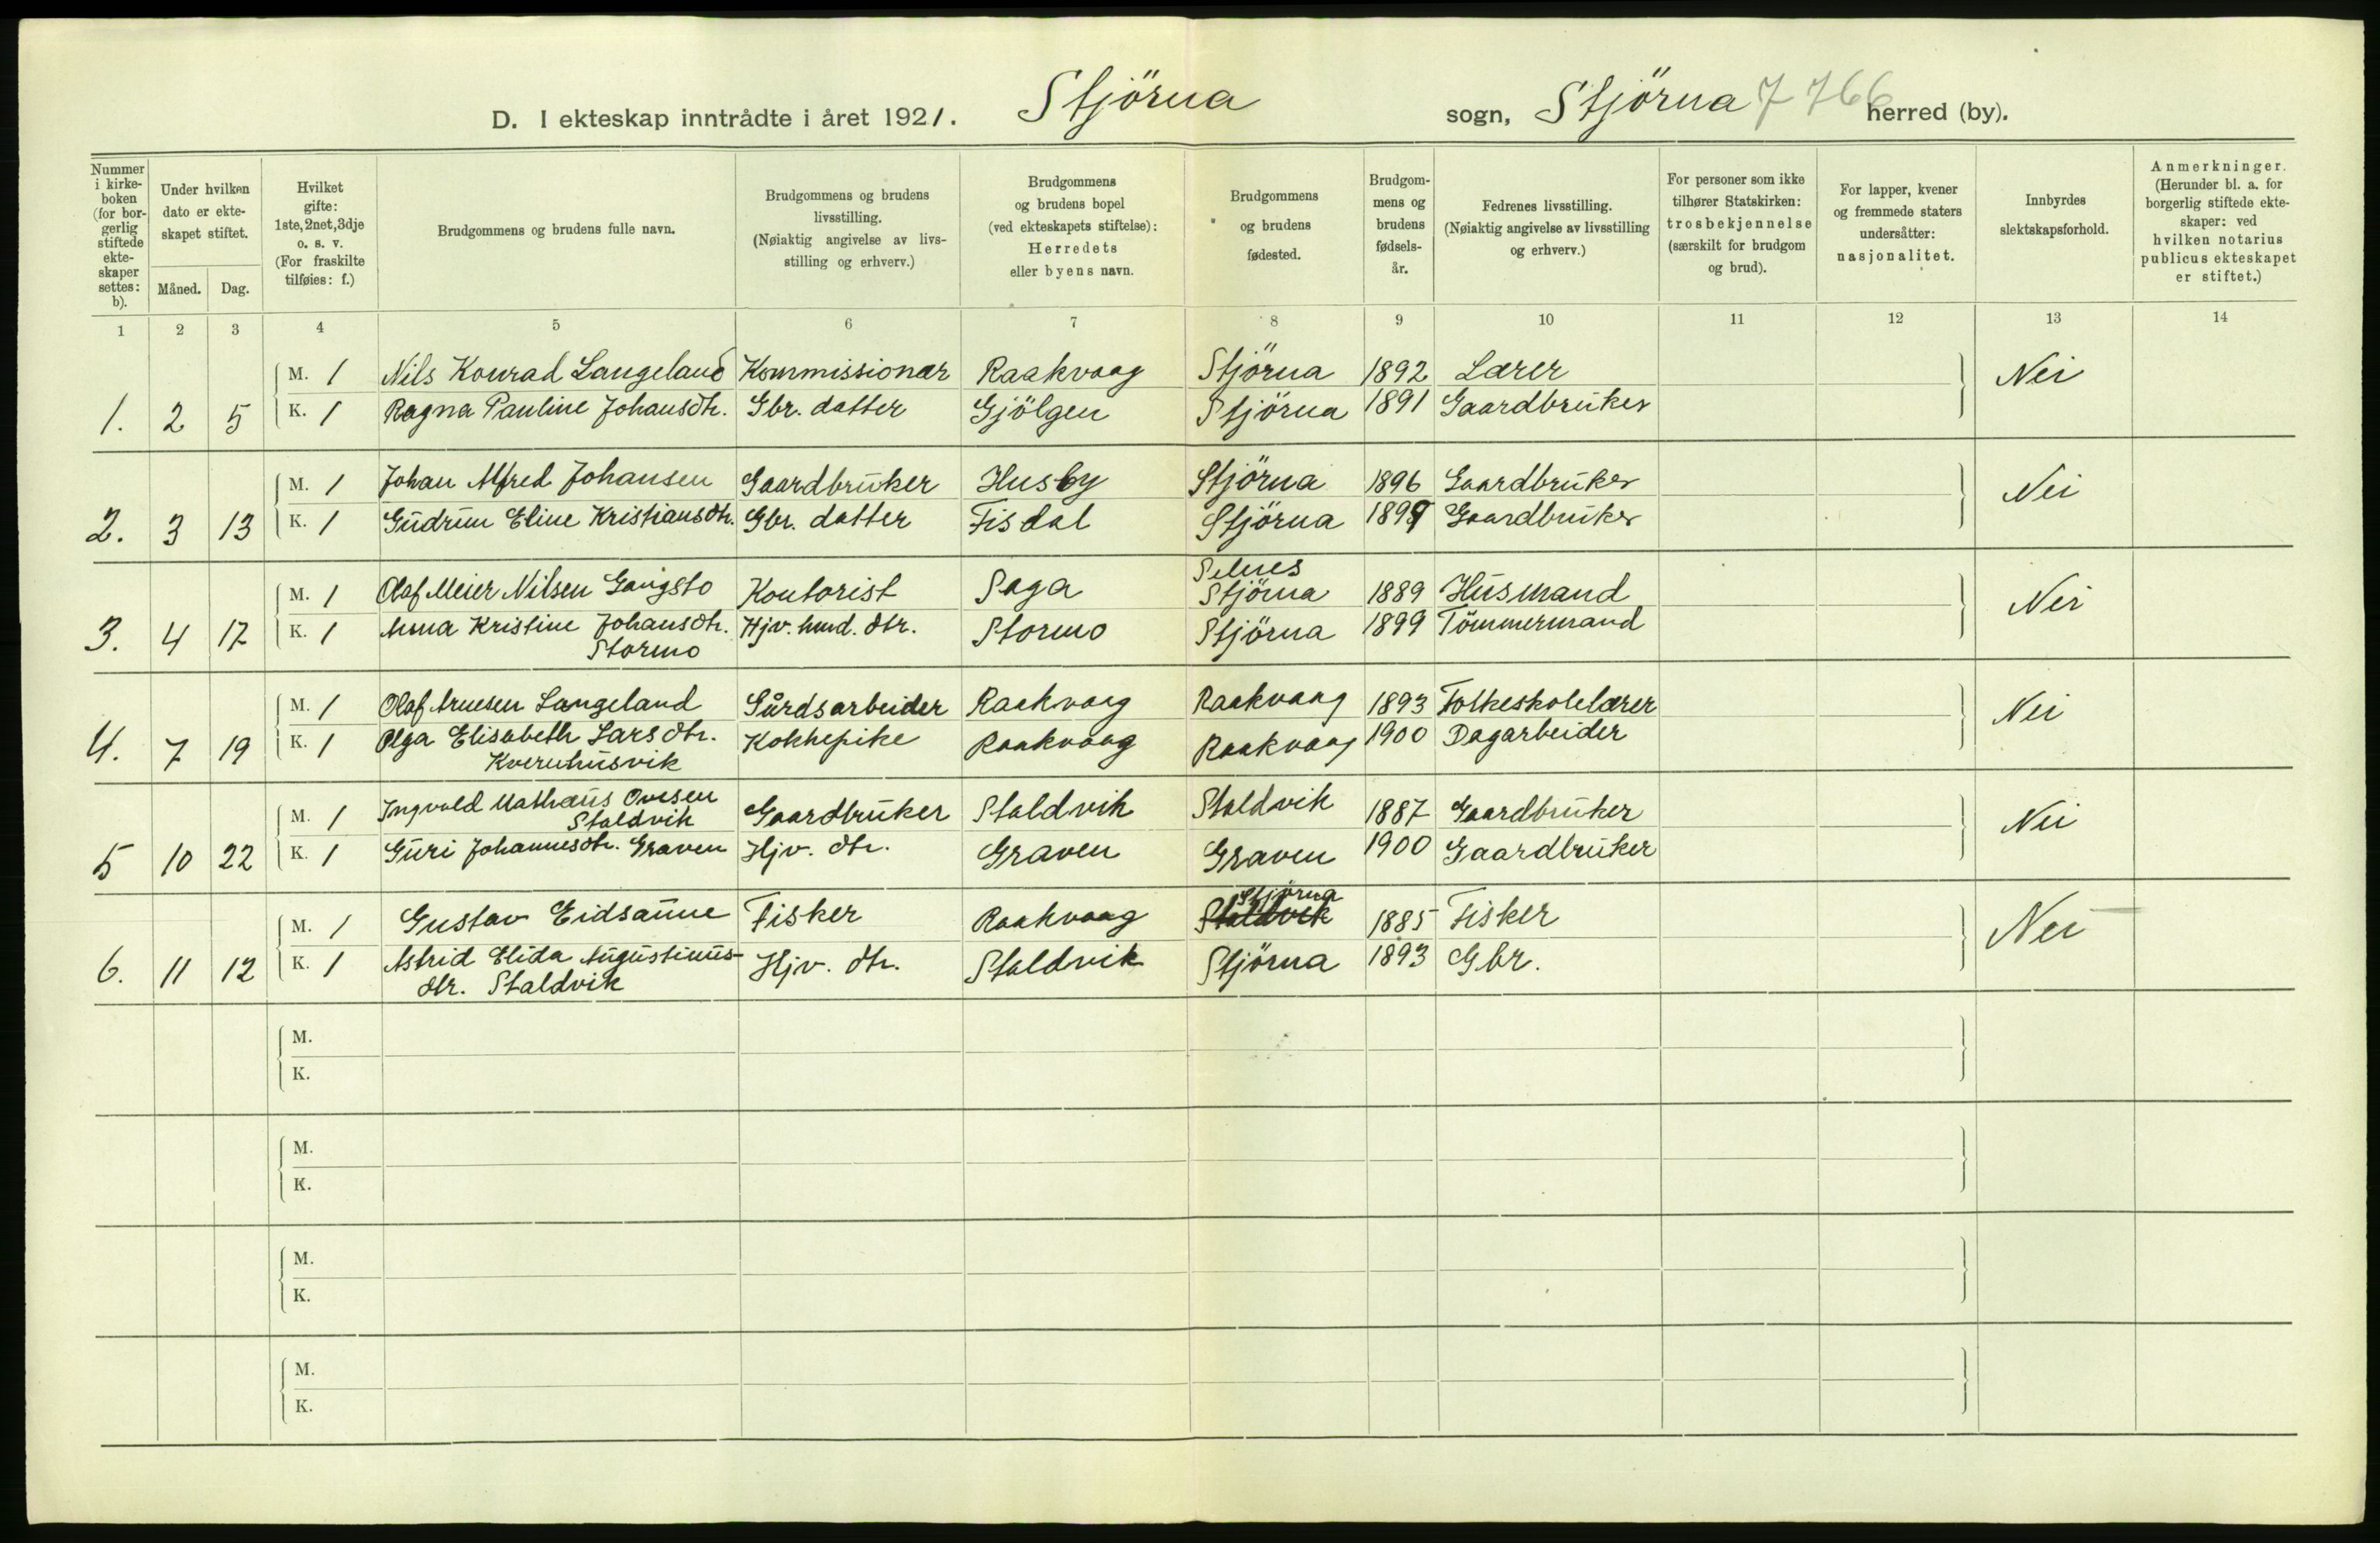 D. I ekteskap inntrådte i året 1921. Stjörna sogn, Stjörna 7766 herred (by).
Nummer i kirkeboken (for borgerlig stiftede ekteskaper settes: b).
Under hvilken dato er ekteskapet stiftet.
Måned. Dag.
Hvilket gifte: 1ste, 2net, 3dje o. s. v. (For fraskilte tilføies: f.)
Brudgommens og brudens fulle navn.
Brudgommens og brudens livsstilling. (Nøiaktig angivelse av livsstilling og erhverv.)
Brudgommens og brudens bopel (ved ekteskapets stiftelse): Herredets eller byens navn.
Brudgommens og brudens fødested.
Brudgommens og brudens fødselsår.
Fedrenes livsstilling. (Nøiaktig angivelse av livsstilling og erhverv.)
For personer som ikke tilhører Statskirken: trosbekjennelse (særskilt for brudgom og brud).
For lapper, kvener og fremmede staters undersåtter: nasjonalitet.
Innbyrdes slektskapsforhold.
Anmerkninger. (Herunder bl. a. for borgerlig stiftede ekteskaper: ved hvilken notarius publicus ekteskapet er stiftet.)
1 2 3 4 5 6 7 8 9 10 11 12 13 14
M. 1 Nils Konrad Langeland Kommissionær Raakvaag Stjörna 1892 Lærer Nei
1. 2 5 K. 1 Ragna Pauline Johansdtr. Gbr. datter Gjölgen Stjörna 1891 Gaardbruker
M. 1 Johan Alfred Johansen Gaardbruker Husby Stjörna 1896 Gaardbruker Nei
2. 3 13 K. 1 Gudrun Eline Kristiansdtr. Gbr. datter Fisdal Stjörna 1899 Gaardbruker
Selnes
M. 1 Olaf Meier Nilsen Gangstö Kontorist Saga Stjörna 1889 Husmand Nei
3. 4 17 K. 1 Anna Kristine Johansdtr. Hjv. hmd. dtr. Stormo Stjörna 1899 Tömmermand
Stormo
M. 1 Olaf Arnesen Langeland Gårdsarbeider Raakvaag Raakvaag 1893 Folkeskolelærer Nei
4. 7 19 K. 1 Olga Elisabeth Larsdtr. Kokkepike Raakvaag Raakvaag 1900 Dagarbeider
Kvernhusvik
M. 1 Ingvald Mathæus Ovesen
Staldvik Gaardbruker Staldvik Staldvik 1887 Gaardbruker Nei
5 10 22 K. 1 Guri Johannesdtr. Graven Hjv. dtr. Graven Graven 1900 Gaardbruker
Stjörna
M. 1 Gustav Eidsaune Fisker Raakvaag Staldvik 1885 Fisker Nei
6. 11 12 K. 1 Astrid Elida Augustinus- Hjv. dtr. Staldvik Stjörna 1893 Gbr.
dtr. Staldvik
M.
K.
M.
K.
M.
K.
M.
K.